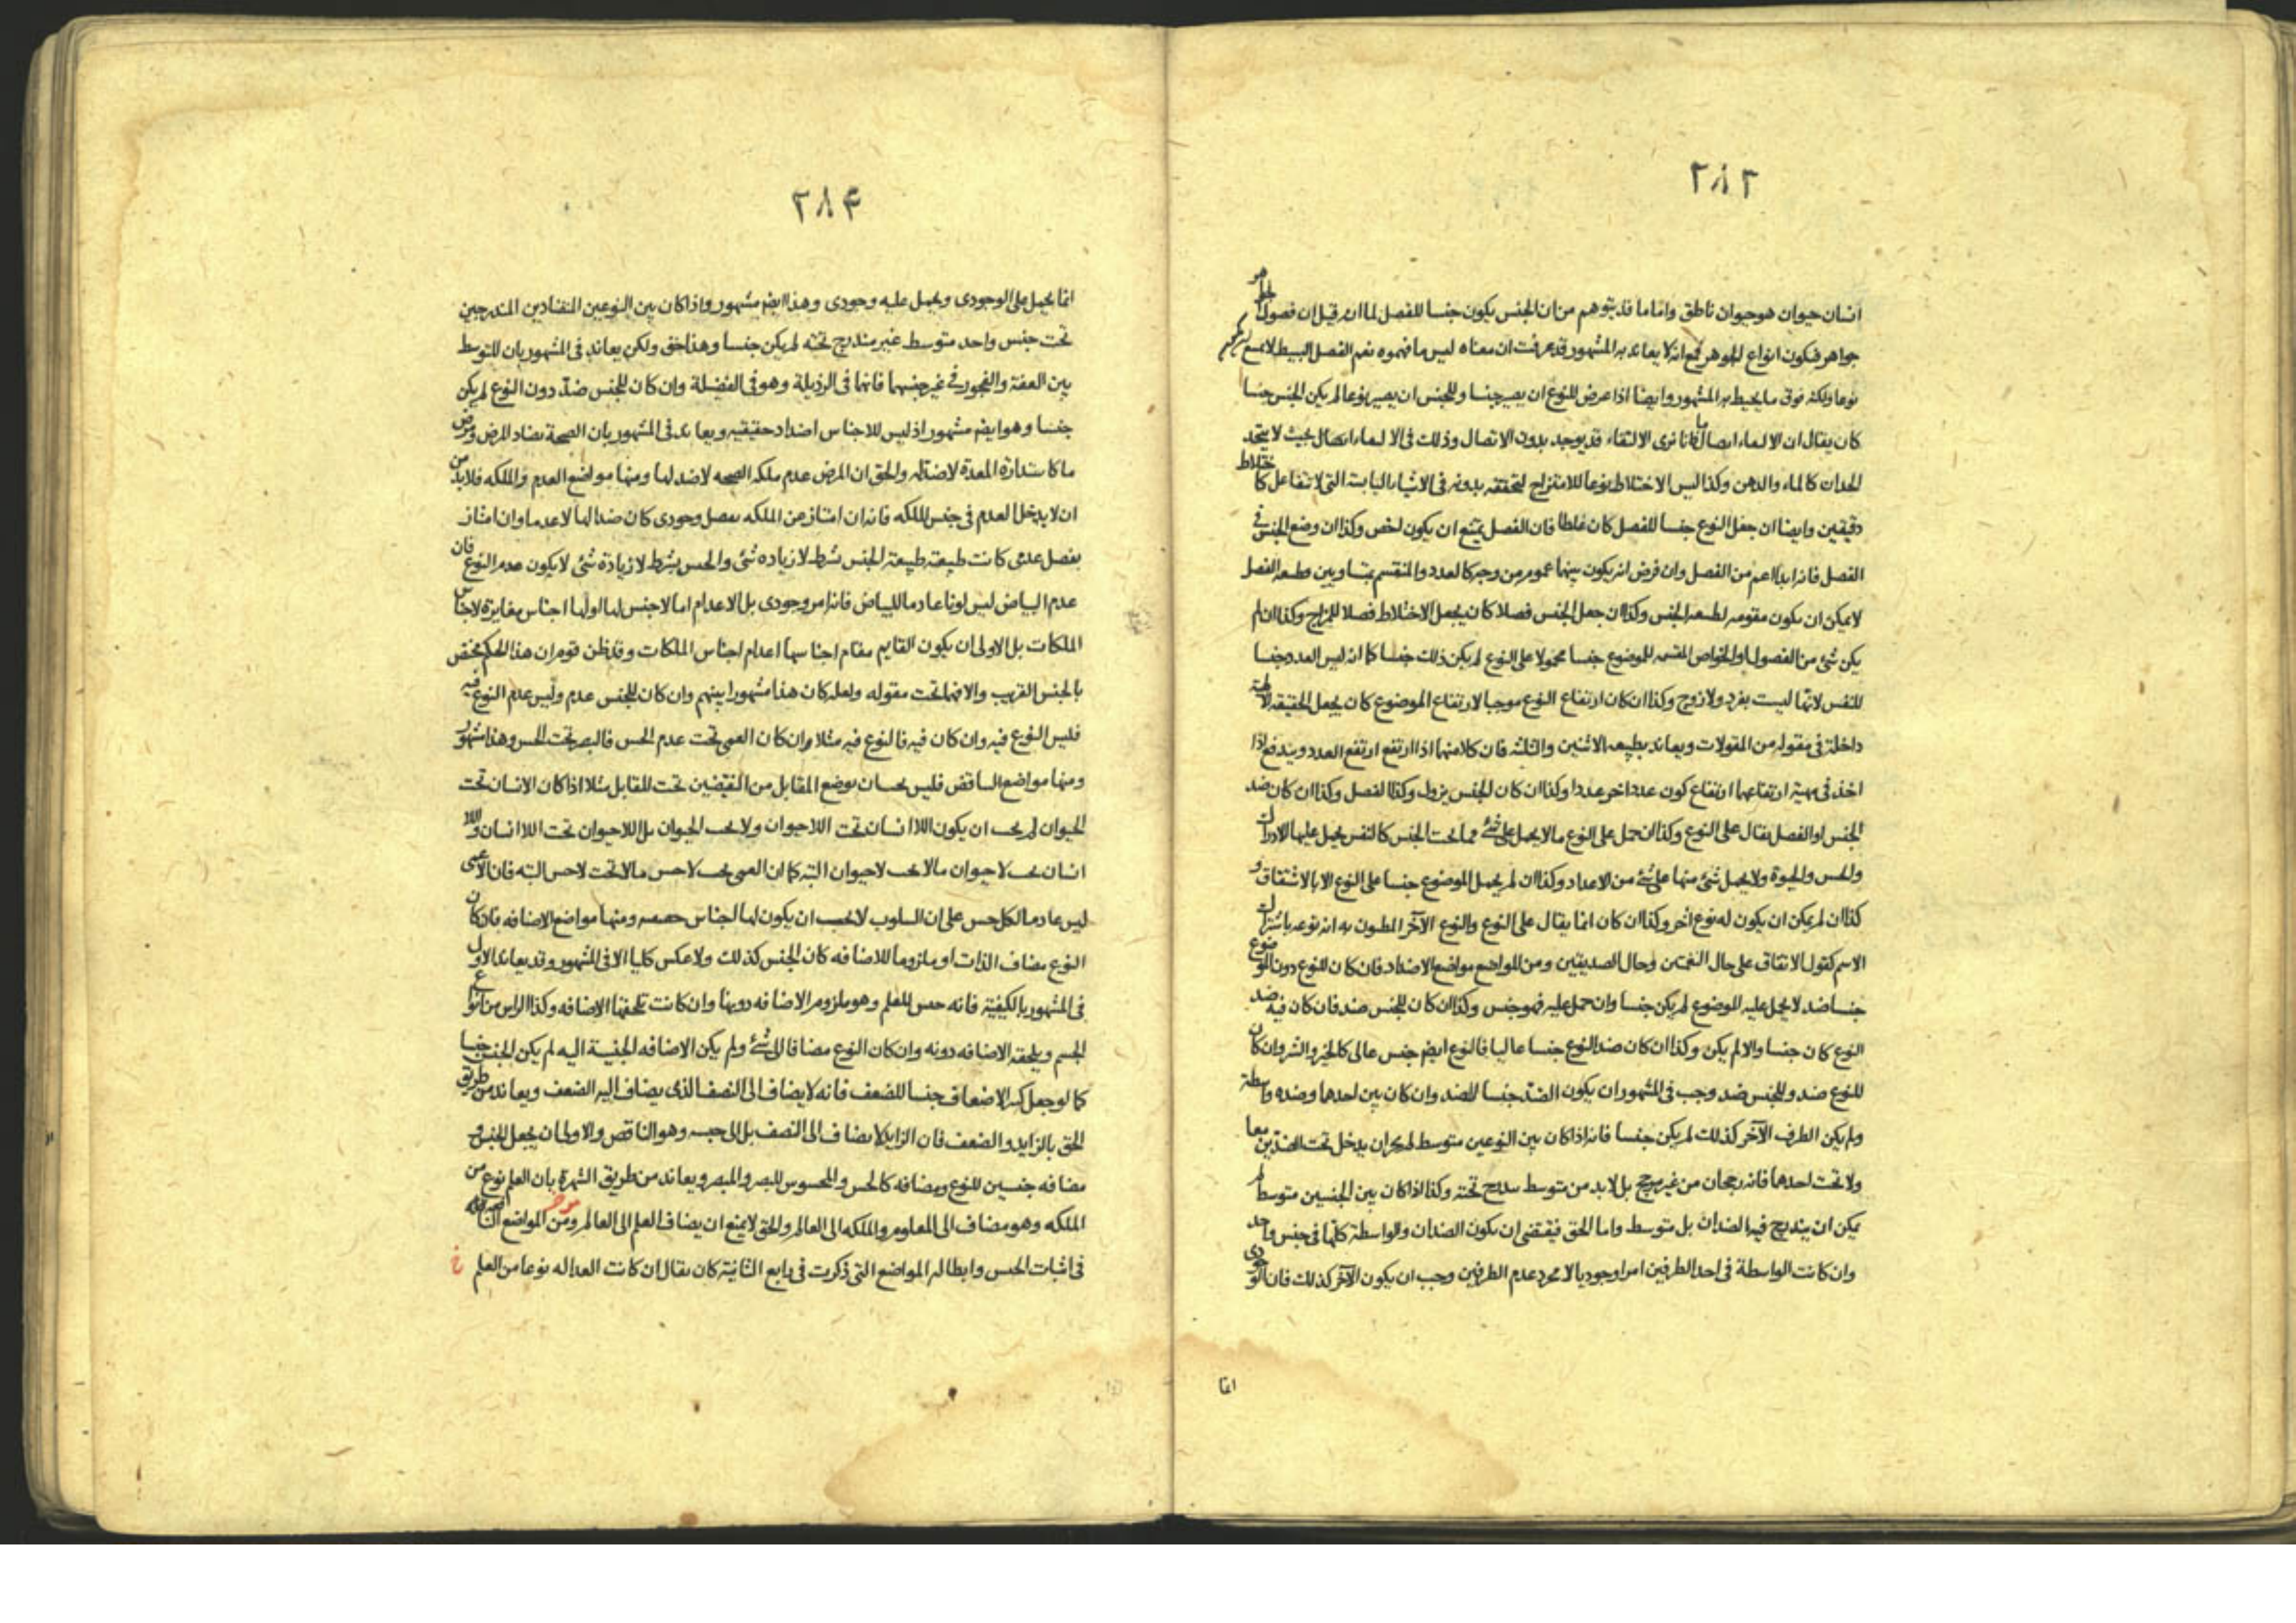 ٢٨٣
انسان حيوان هو حيوان ناطق واما ما قد يتوهم من ان الجنس يكون جنسا للفصل لما انه قيل ان فصول
جواهر فيكون انواع الجوهر فمع انه لا يعاند به المشهور قد عرفت ان معناه ليس ما فهموه نعم الفصل البسيط
نوعا ولكنه فوق ما يحيط به المشهور وايضا اذا عرض للنوع ان يصير جنسا وللجنس ان يصير نوعا لم يكن الجنس جنسا
كان يقال ان الالتقاء اتصال فانا نرى الالتقاء قد يوجد بدون الاتصال وذلك فى الالتقاء اتصال بحيث لا يتحد
الحدان كالماء والدهن وكذا ليس الاختلاط نوعا للامتزاج لتحققه بدونه فى الاشياء اليابسة التى لا تتفاعل كاختلاط
دقيقين وايضا ان جعل النوع جنسا للفصل كان غلطا فان الفصل يمتنع ان يكون اخص وكذا ان وضع الجنس فى
الفصل فانه ابدا اعم من الفصل وان فرض انه يكون بينهما عموم من وجه كالعدد والمنقسم بمتساويين وطبيعة الفصل
لا يمكن ان يكون مقومه لطبيعة الجنس وكذا ان جعل الجنس فصلا كان يجعل الاختلاط فصلا للمزاج وكذا ان لم
يكن شئ من الفصول او الخواص المقسمه للموضوع جنسا محمولا على النوع لم يكن ذلك جنسا كما انه ليس العدد جنسا
للنفس لانها ليست بفرد ولا زوج وكذا ان كان ارتفاع النوع موجبا لارتفاع الموضوع كان يجعل الحقيقة
داخلة فى مقوله من المقولات ويعاند بطبيعه الاثنين والثلثه فان كلا منهما اذا ارتفع ارتفع العدد ويندفع اذا
اخذ فى مهية ارتفاعهما ارتفاع كون عدد اخر عددا وكذا ان كان الجنس يزول وكذا الفصل وكذا ان كان ضد
الجنس او الفصل يقال على النوع وكذا ان حمل على النوع ما لا يحمل على شئ مما تحت الجنس كالنفس يحمل عليها الادراك
والحس والحيوة ولا يحمل شئ منها على شئ من الاعداد وكذا ان لم يحمل الموضوع جنسا على النوع الا بالاشتقاق و
كذا ان لم يمكن ان يكون له نوع اخر وكذا ان كان انما يقال على النوع والنوع الآخر المظنون به انه نوعه باشتراك
الاسم كقول الاتفاق على حال النغمتين وحال الصديقين ومن المواضع مواضع الاضداد فان كان للنوع دون الموضوع
جنسا ضد لا يحمل عليه الموضوع لم يكن جنسا وان حمل عليه فهو جنس وكذا ان كان للجنس ضد فان كان فيه ضد
النوع كان جنسا والا لم يكن وكذا ان كان ضد النوع جنسا عاليا فالنوع ايضا جنس عالى كالخير والشر وان كان
للنوع ضد وللجنس ضد وجب فى المشهور ان يكون الضد جنسا للضد وان كان بين احدهما وضده واسطة
ولم يكن الطرف الآخر كذلك لم يكن جنسا فانه اذا كان بين النوعين متوسط لم يكن ان يدخل تحت الضدين معا
ولا تحت احدهما فانه رجحان من غير مرجح بل لا بد من متوسط يندرج تحته وكذا اذا كان بين الجنسين متوسط لم
يمكن ان يندرج فيه الضدان بل متوسط واما الحق فيقتضى ان يكون الضدان والواسطة كلها فى جنس واحد
وان كانت الواسطة فى احد الطرفين امرا وجوديا لا مجرد عدم الطرفين وجب ان يكون الآخر كذلك فان الوجودى
انما
٢٨۴
انما يحمل على الوجودى ويحمل عليه وجودى وهذا ايضا مشهور واذا كان بين النوعين المتضادين المندرجين
تحت جنس واحد متوسط غير مندرج تحته لم يكن جنسا وهذا حق ولكن يعاند فى المشهور بان المتوسط
بين العفة والفجور فى غير جنسهما فانهما فى الرذيلة وهو فى الفضيلة وان كان للجنس ضد دون النوع لم يكن
جنسا وهو ايضا مشهور اذ ليس للاجناس اضداد حقيقيه ويعاند فى المشهور بان الصحة يضاد المرض ومرض
ما كاستدارة المعدة لا ضد له والحق ان المرض عدم ملكه الصحه لا ضد لها ومنها مواضع العدم والملكه فلا بد من
ان لا يدخل العدم فى جنس الملكه فانه ان امتاز عن الملكه بفصل وجودى كان ضدا لها لا عدما وان امتاز
بفصل عدمى كانت طبيعته طبيعة الجنس بشرط لا زياده شئ والجنس بشرط لا زيادة شئ لا يكون عدم النوع فان
عدم البياض ليس لونا عادما للبياض فانه امر وجودى بل الاعدام اما لا جنس لها او لها اجناس مغايرة لاجناس
الملكات بل الاولى ان يكون القايم مقام اجناسها اعدام اجناس الملكات وقد ظن قوم ان هذا الحكم مختص
بالجنس القريب والا فهما تحت مقوله ولعله كان هذا مشهورا بينهم وان كان للجنس عدم وليس عدم النوع فيه
فليس النوع فيه وان كان فيه فالنوع فيه مثلا وان كان العمى تحت عدم الحس فالبصر تحت الحس وهذا مشهور
ومنها مواضع التناقض فليس يجب ان يوضع المقابل من النقيضين تحت المقابل مثلا اذا كان الانسان تحت
الحيوان لم يجب ان يكون اللاانسان تحت اللاحيوان ولا يجب الحيوان بل اللاحيوان تحت اللاانسان واللا
انسان يجب لا حيوان مالا يجب لا حيوان البته كما ان العمى يجب لا حس مالا تحت لا حس البته فان الاعمى
ليس عادما لكل حس على ان السلوب لا يجب ان يكون لها اجناس حقيقيه ومنها مواضع الاضافه فاذا كان
النوع مضاف الذات او ملزوما للاضافه كان الجنس كذلك ولا عكس كليا الا فى المشهور وقد يعاند الاول
فى المشهور بالكيفية فانه جنس للعلم وهو ملزوم الاضافه دونها وان كانت تلحقها الاضافه وكذا الراس من انواع
الجسم ويلحقه الاضافه دونه وان كان النوع مضافا الى شئ ولم يكن الاضافه الجنسية اليه لم يكن الجنس جنسا
كما لو جعل كثير الاضعاف جنسا للضعف فانه لا يضاف الى النصف الذى يضاف اليه الضعف ويعاند من طريق
الحق بالزايد والضعف فان الزايد لا يضاف الى النصف بل الى جنسه وهو الناقص والاولى ان يجعل الجنس و
مضافه جنسين للنوع ومضافه كالحس والمحسوس للبصر والمبصر ويعاند من طريق الشهرة بان العلم نوع من
الملكه وهو مضاف الى المعلوم والملكه الى العالم والحق لا يمنع ان يضاف العلم الى العالم ومن المواضع
فى اثبات الجنس وابطاله المواضع التى ذكرت فى رابع الثانية كان يقال ان كانت العداله نوعا من العلم